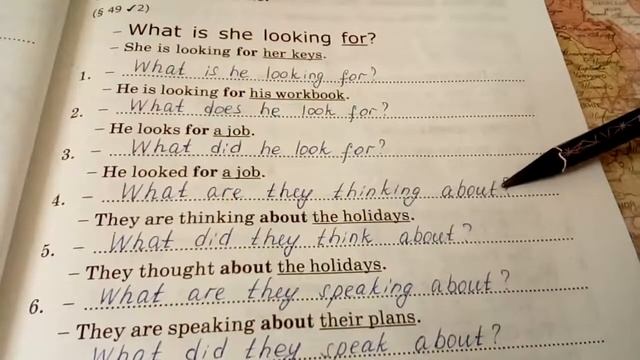 (§ 49 ✓2)
– What is she looking for?
– She is looking for her keys.
1. – What is he looking for?
– He is looking for his workbook.
2. – What does he look for?
– He looks for a job.
3. – What did he look for?
– He looked for a job.
4. – What are they thinking about?
– They are thinking about the holidays.
5. – What did they think about?
– They thought about the holidays.
6. – What are they speaking about?
– They are speaking about their plans.
What did they speak about?